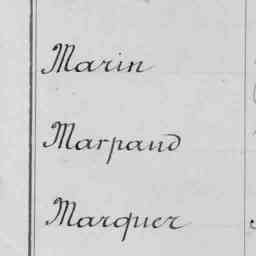 Marin
Marpaud
Marquer